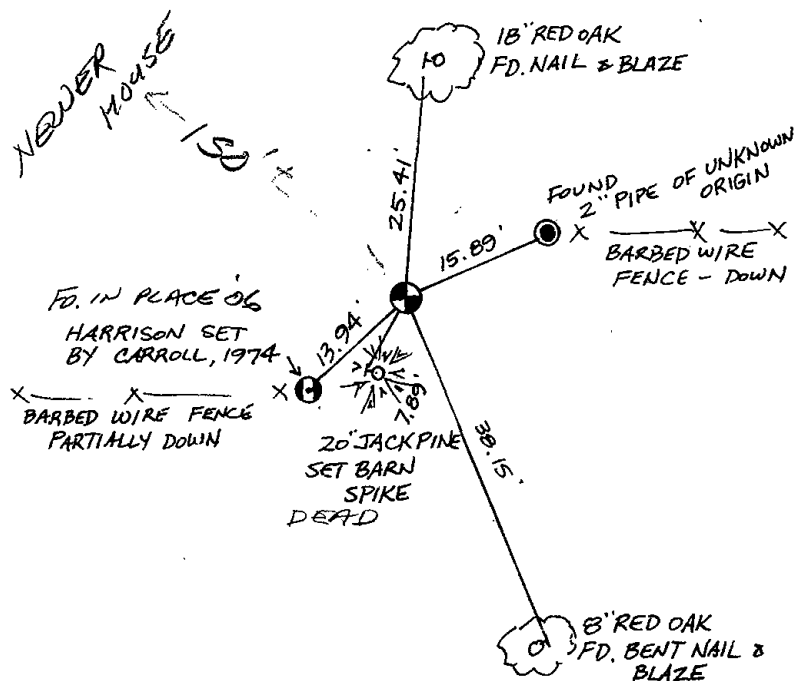 NEWER
HOUSE
150'±
18" RED OAK
FD. NAIL & BLAZE
25.41'
FOUND
2" PIPE OF UNKNOWN
ORIGIN
15.89'
BARBED WIRE
FENCE - DOWN
FD. IN PLACE '06
HARRISON SET
BY CARROLL, 1974
13.94'
BARBED WIRE FENCE
PARTIALLY DOWN
7.89'
20" JACK PINE
SET BARN
SPIKE
DEAD
38.15'
8" RED OAK
FD. BENT NAIL &
BLAZE